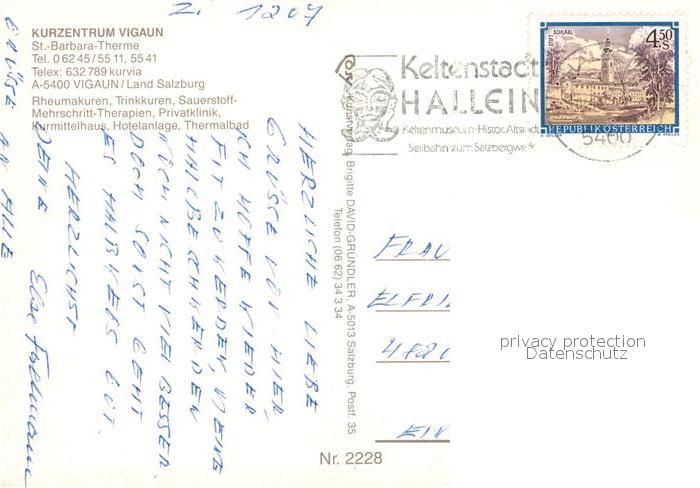 Z. 1207
KURZENTRUM VIGAUN
St.-Barbara-Therme
Tel. 0 62 45 / 55 11, 55 41
Telex: 632 789 kurvia
A-5400 VIGAUN / Land Salzburg
Rheumakuren, Trinkkuren, Sauerstoff-
Mehrschritt-Therapien, Privatklinik,
Kurmittelhaus, Hotelanlage, Thermalbad
HERZLICHE LIEBE
GRÜSSE VON HIER,
ICH HOFFE WIEDER
FIT ZU WERDEN, MEINE
SIND
NOCH NICHT VIEL BESSER
DOCH SONST GEHT
ES HALBWEGS GUT.
HERZLICHST
DEINE Else
GRÜSSE AN ALLE
Kunstverlag Brigitte DAVID-GRÜNDLER, A-5013 Salzburg, Postf. 35
Telefon (06 62) 34 3 34
Keltenstadt
HALLEIN
Keltenmuseum-Histor. Altstadt
Seilbahn zum Salzbergwerk
5400
STIFT SCHLÄGL
4.50 S
REPUBLIK ÖSTERREICH
FRAU
ELFRI
482
EIN
privacy protection
Datenschutz
Nr. 2228